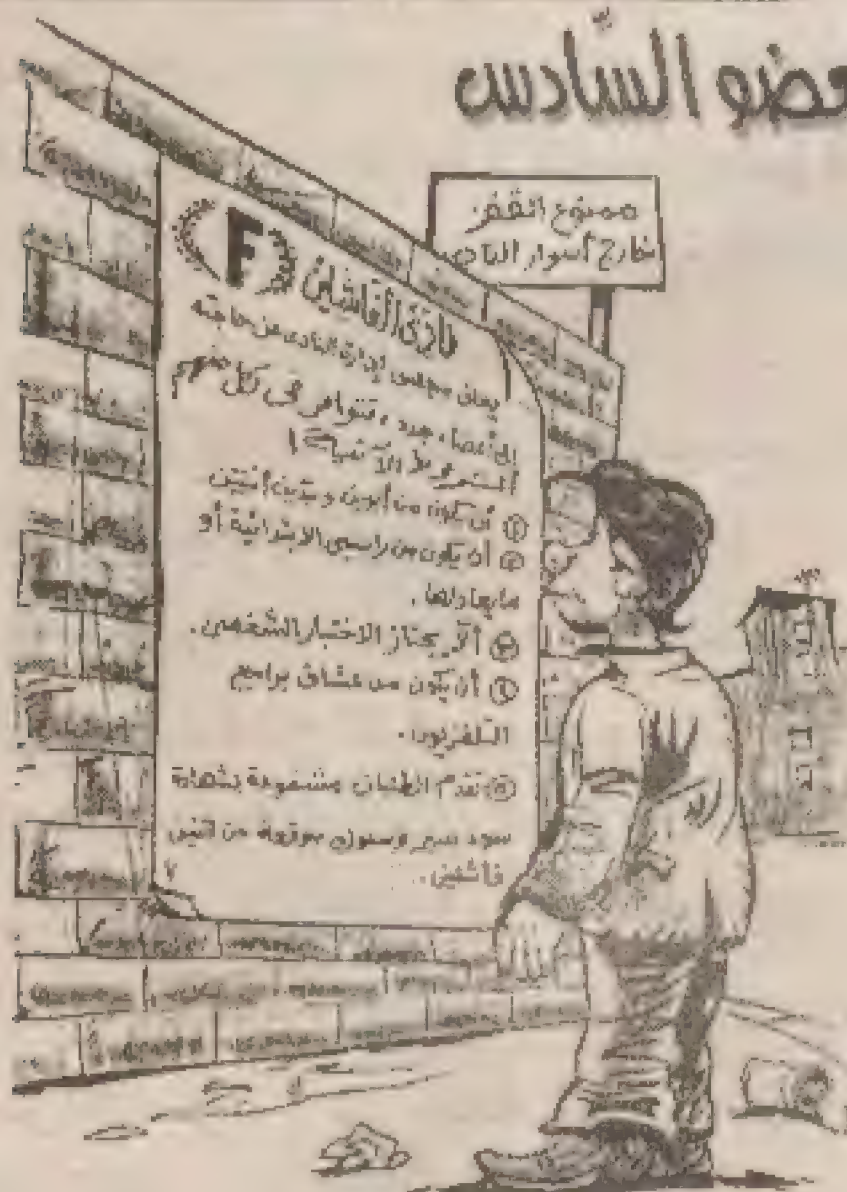 عضو السّادس
ممنوع القفز
خارج أسوار النادي
F
نادي الفاشلين
يعلن مجلس إدارة النادي عن حاجته
إلى أعضاء جدد، تتوافر في كل منهم
الشروط الآتية:
① أن يكون من أبوين وجدّين
② أن يكون من راسبي الابتدائية أو
ما يعادلها.
③ ألّا يجتاز الاختبار الشّخصي.
④ أن يكون من عشاق برامج
التلفزيون.
⑤ تقدم الطلبات مشفوعة بشهادة
سير وسلوك موقعة من اثنين
فاشلين.